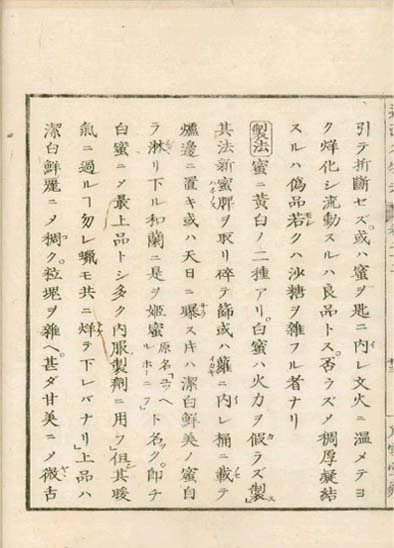 引テ折斷セズ。或ハ蜜ヲ匙ニ内レ文火ニ温メテヨ
ク烊化シ流動スルハ良品トス。否ラズメ稠厚凝結
スルハ僞品若クハ沙糖ヲ雑フル者ナリ
製法 蜜ニ黄白ノ二種アリ。白蜜ハ火力ヲ假ラズ製ス
其法新蜜脾ヲ取リ碎テ篩或ハ籮ニ内レ桶ニ載テ
爐邊ニ置キ或ハ天日ニ曝スキハ潔白鮮美ノ蜜自
ラ淋リ下ル和蘭ニ是ヲ姫蜜 原名「ユッヘルホーニフ」ト名ク。即チ
白蜜ニメ最上品トシ多ク内服製劑ニ用フ」但其暖
氣ニ過ルヿ勿レ蝋モ共ニ烊テ下レバナリ」上品ハ
潔白鮮麗ニメ稠ク。粒塊ヲ雑ヘ。甚ダ甘美ニメ微舌